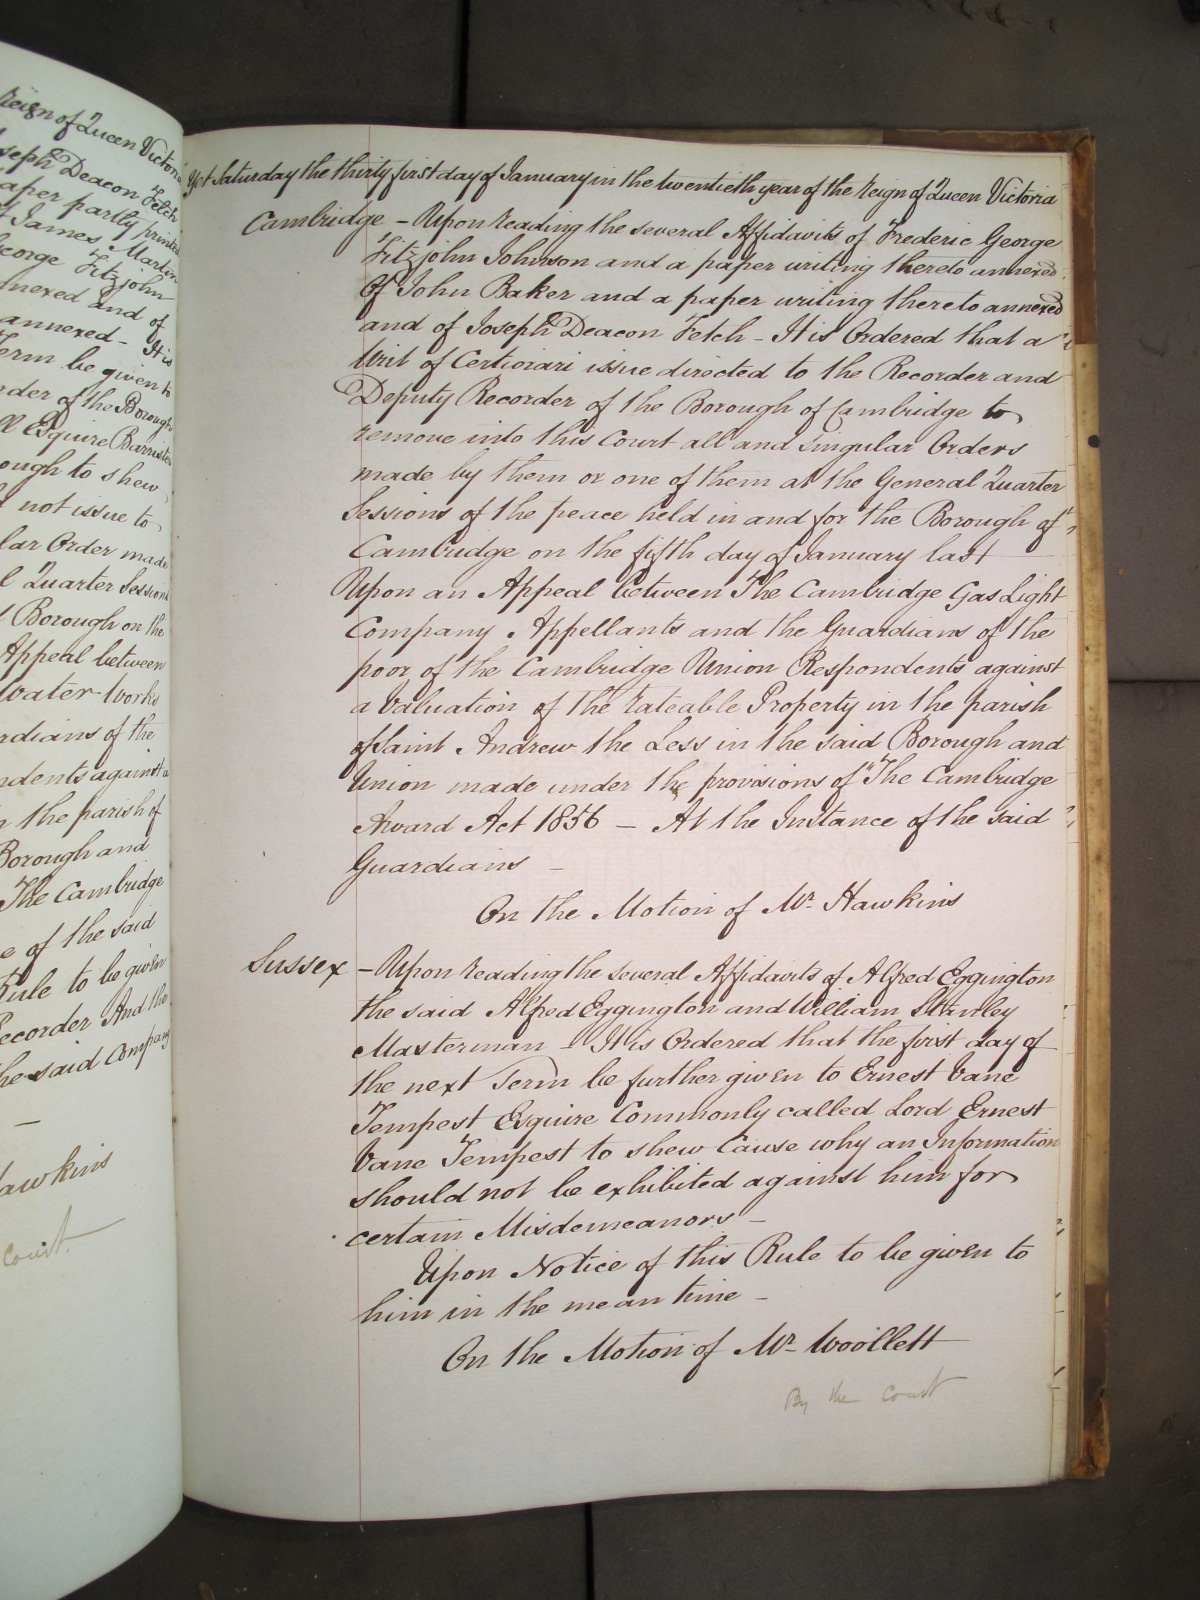 Reign of Queen Victoria
Joseph Deacon Fetch
paper partly printed
James Martin
George Fitzjohn
annexed and of
annexed - It is
Term be given to
order of the Borough
Esquire Barrister
ough to shew
not issue to
lar Order made
Quarter Sessions
Borough on the
Appeal between
Water Works
rdians of the
ndents against a
in the parish of
Borough and
The Cambridge
e of the said
Rule to be given
Recorder And the
the said Company
Hawkins
Court
Yet Saturday the thirty first day of January in the twentieth year of the Reign of Queen Victoria
Cambridge - Upon reading the several Affidavits of Frederic George
Fitzjohn Johnson and a paper writing thereto annexed
Of John Baker and a paper writing thereto annexed
and of Joseph Deacon Fetch - It is Ordered that a
Writ of Certiorari issue directed to the Recorder and
Deputy Recorder of the Borough of Cambridge to
remove into this Court all and singular Orders
made by them or one of them at the General Quarter
Sessions of the peace held in and for the Borough of
Cambridge on the fifth day of January last
Upon an Appeal between The Cambridge Gas Light
Company Appellants and the Guardians of the
poor of the Cambridge Union Respondents against
a Valuation of the rateable Property in the parish
of Saint Andrew the Less in the said Borough and
Union made under the provisions of "The Cambridge
Award Act 1856 - At the Instance of the said
Guardians -
On the Motion of Mr. Hawkins
Sussex - Upon reading the several Affidavits of Alfred Eggington
the said Alfred Eggington and William Stanley
Masterman - It is Ordered that the first day of
the next Term be further given to Ernest Vane
Tempest Esquire Commonly called Lord Ernest
Vane Tempest to shew Cause why an Information
should not be exhibited against him for
certain Misdemeanors -
Upon Notice of this Rule to be given to
him in the mean time -
On the Motion of Mr. Woollett
By the Court